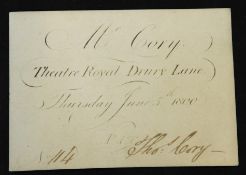 Mr Cory
Theatre Royal Drury Lane
Thursday June 5th 1800
No 114 Thos Cory